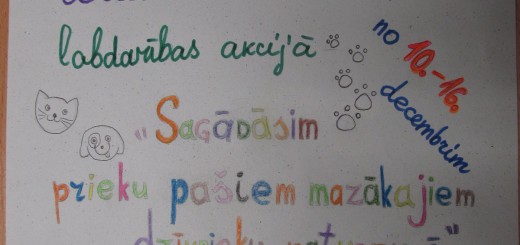 labdarības akcijā
no
10.-16.
decembrim
"Sagādāsim
prieku pašiem mazākajiem
dzīvnieku